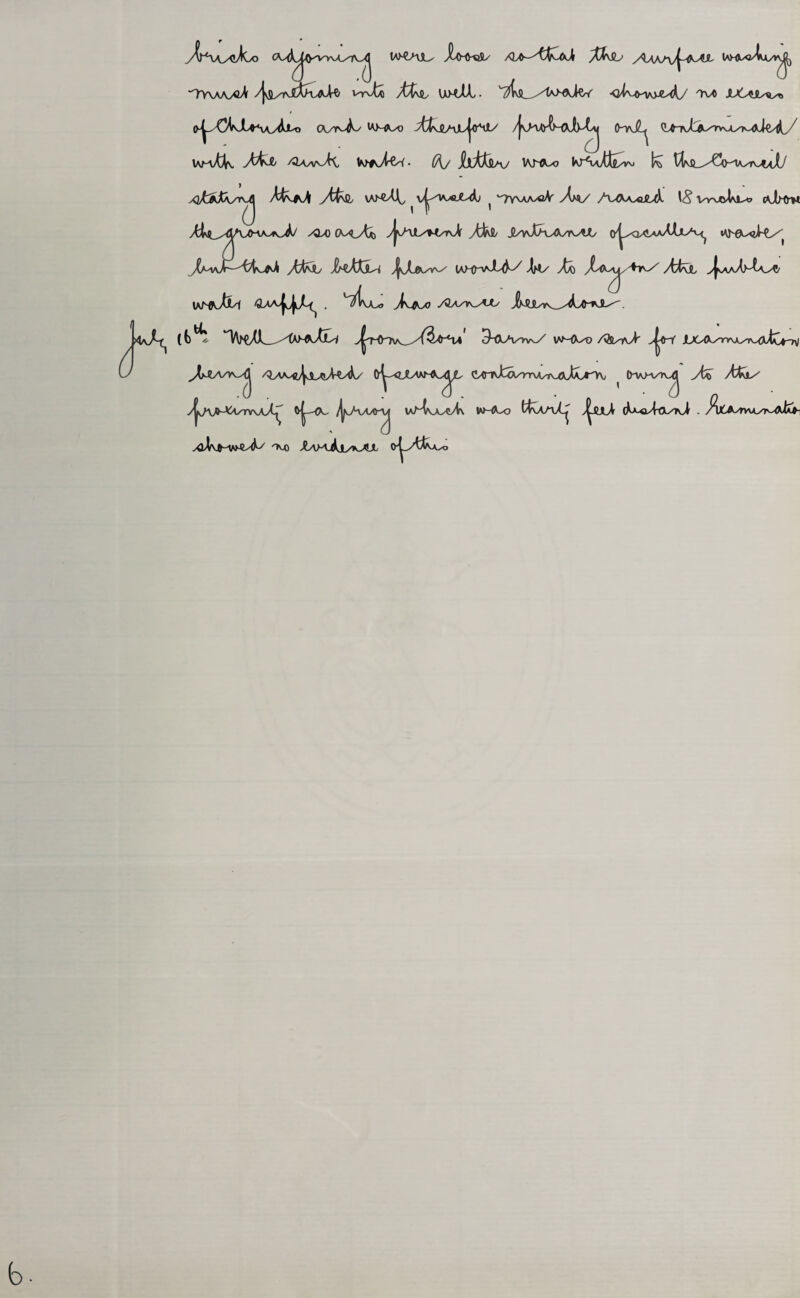 bricks adjoining were loose so that the surface washing
must penetrate into the well. The water showed no excess
of Chlorides and was therefore probably only contaminated
with the surface water. A letter was written to the Council
stating that the well, if used, must be raised 18 inches above
the ground so as to prevent the entrance of surface washes,
but that the better plan would be to lay on the public
water supply. This has since been done.
July 16th Well water from Bow Farm was sent for examination
being suspected of sewage contamination, owing to the
proximity of a privy which was thirty feet distant. Examination
showed no evidence of this
6.